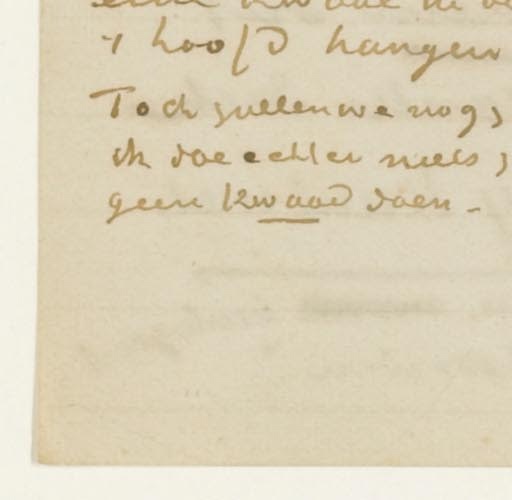 kwaal
't hoofd hangen
Toch zullen we nog
ik doe echter niets
geen kwaad doen -